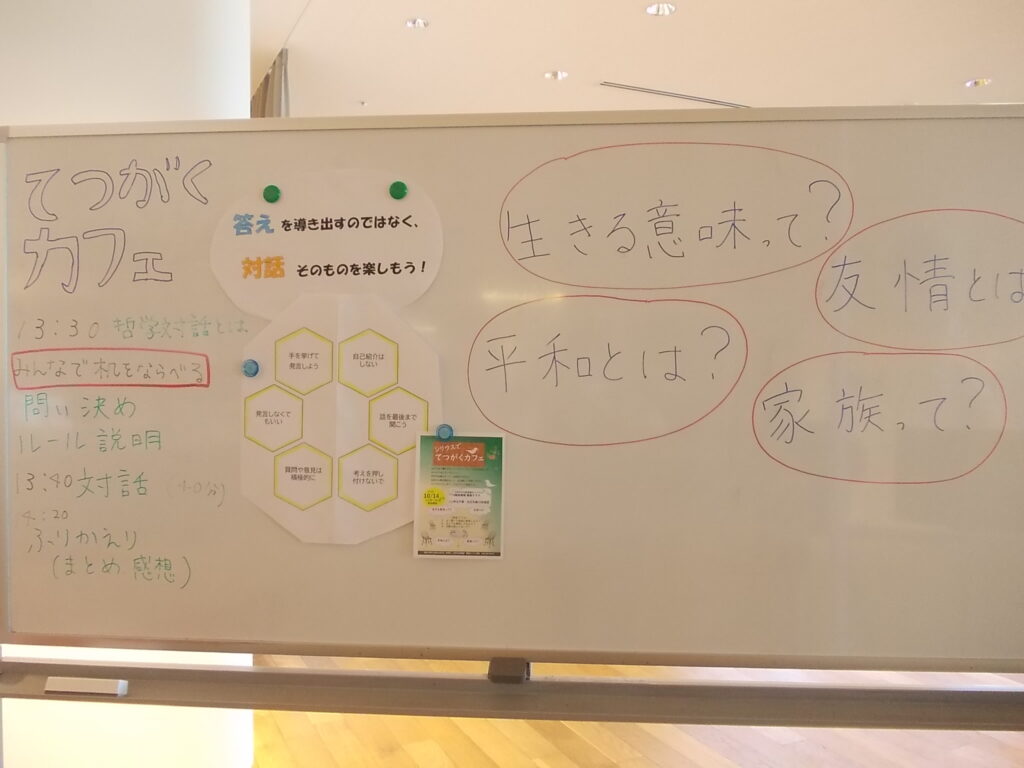 てつがく
カフェ
13:30 哲学対話とは
みんなで机をならべる
問い決め
ルール説明
13:40 対話 (40分)
4:20
ふりかえり
(まとめ 感想)
答え を導き出すのではなく、
対話 そのものを楽しもう!
手を挙げて
発言しよう
自己紹介は
しない
発言しなくて
もいい
話を最後まで
聞こう
質問や意見は
積極的に
考えを押し
付けないで
シリウスで
てつがくカフェ
10/14
生きる意味って?
友情とは
平和とは?
家族って?